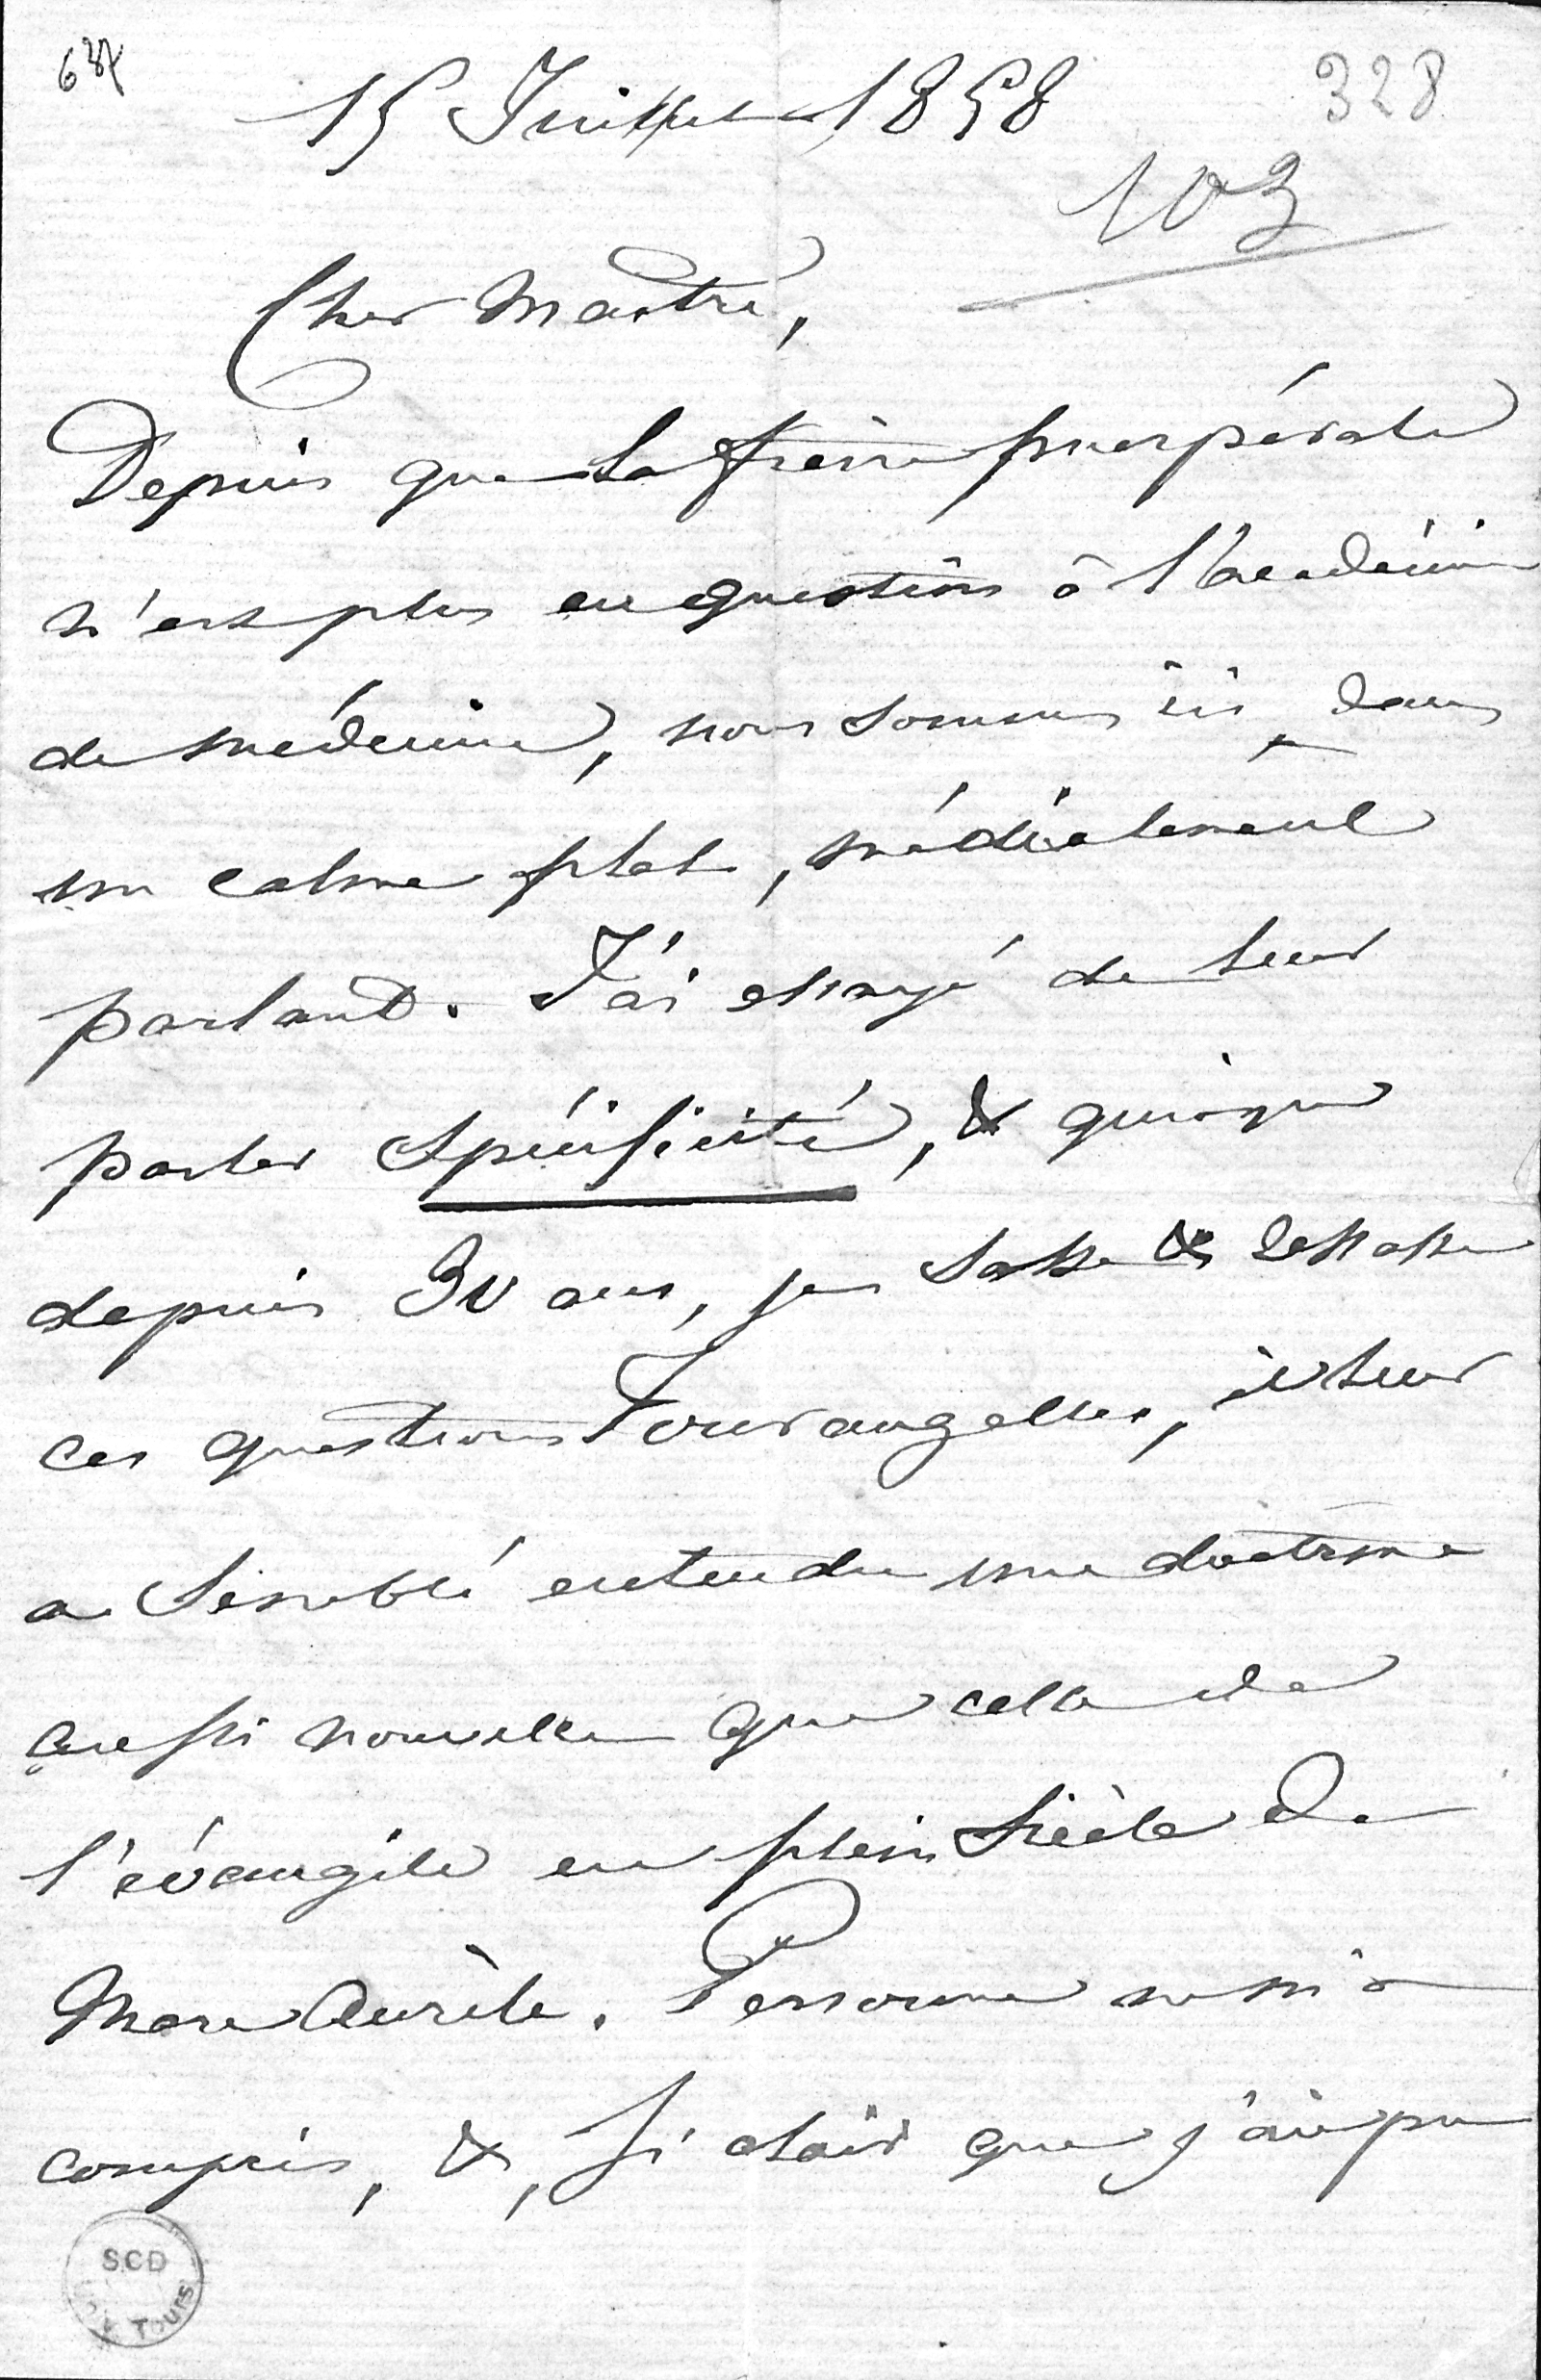 637
328
15 Juillet 1858
103
Cher Maître,
Depuis que la fièvre puerpérale
n'est plus en question à l'académie
de médecine, nous sommes ici, dans
un calme plat, médicalement
parlant. J'ai essayé de leur
parler spécificité, & quoique
depuis 30 ans, je sasse & ressasse
ces questions Tourangelles, il leur
a semblé entendre une doctrine
aussi nouvelle que celle de
l'évangile en plein siècle de
Marc Aurèle. Personne ne m'a
compris, &, si clair que j'aie pu
SCD
TOURS